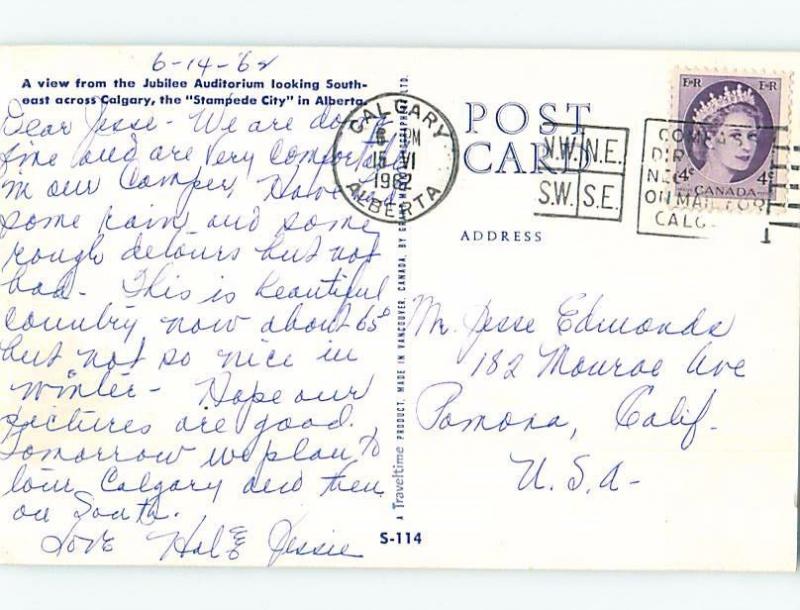 6-14-62
A view from the Jubilee Auditorium looking South-
east across Calgary, the "Stampede City" in Alberta.
Dear Jesse - We are doing
fine and are very comfortable
in our Camper. Have had
some rain and some
rough detours but not
bad. This is beautiful
country now about 65°
but not so nice in
winter - Hope our
pictures are good.
Tomorrow we plan to
tour Calgary and then
on South.
Love Hal & Jessie
S-114
A Traveltime PRODUCT, MADE IN VANCOUVER, CANADA, BY GRANT-MANN LITHOGRAPHERS LTD.
POST
CARD
ADDRESS
CALGARY
PM
15 VI
1962
ALBERTA
N.W. N.E.
S.W. S.E.
COMPASS
DIR
NEC
ON MAIL FOR
CALG
1
E II R E II R
4¢ 4¢
CANADA
Mr. Jesse Edmonds
182 Monroe Ave
Pomona, Calif.
U.S.A-